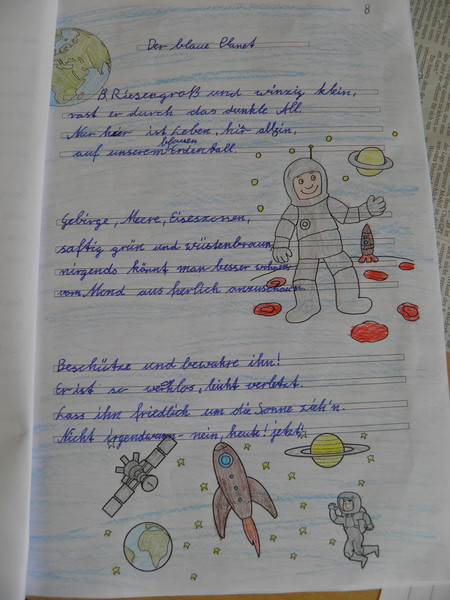 8
Der blaue Planet
Riesengroß und winzig klein,
rast er durch das dunkle All.
Nur hier ist Leben, hir allein,
auf unserem blauen Erdenball.
Gebirge, Meere, Eiseszonen,
saftig grün und wüstenbraun,
nirgends könnt man besser wohnen
vom Mond aus herlich anzuschaun.
Beschütze und bewahre ihn!
Er ist so wehrlos, leicht verletzt.
Lass ihn friedlich um die Sonne zieh'n.
Nicht irgendwann - nein, heute! jetzt!